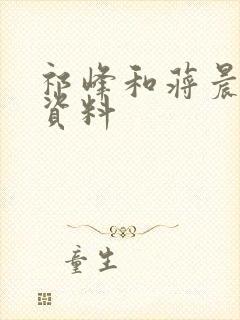 祁峰和蒋晨
资料
童生